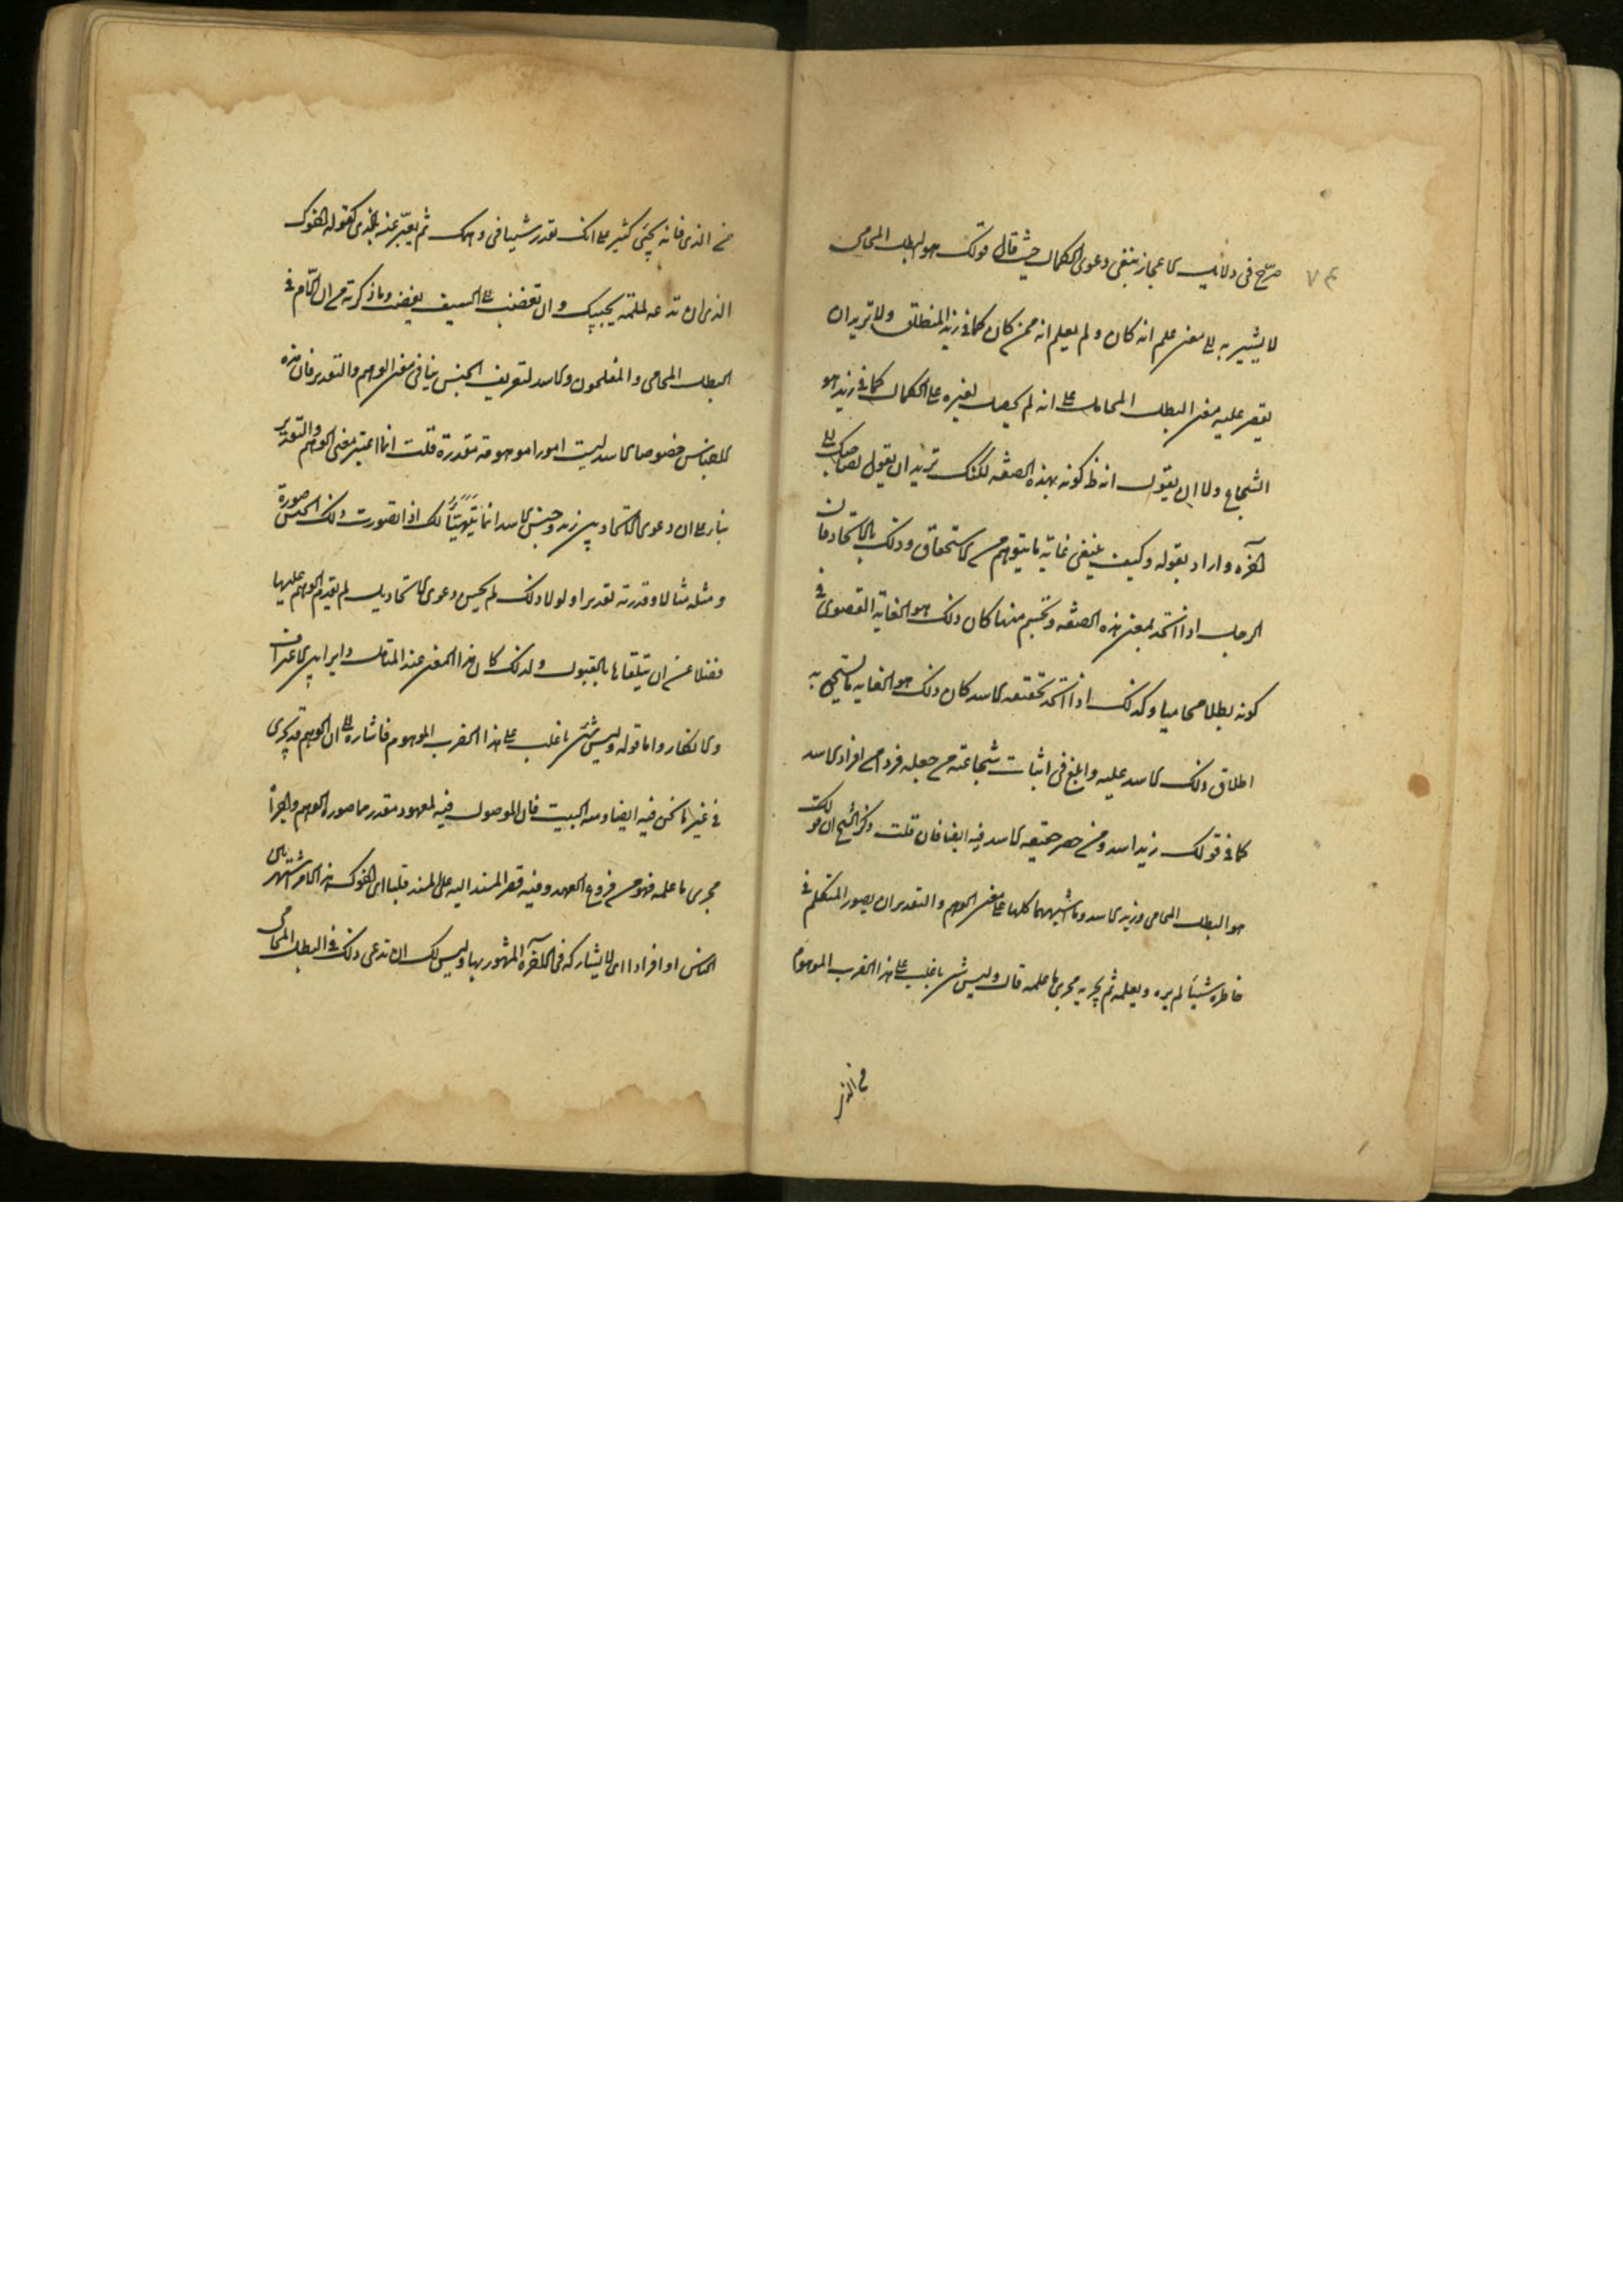 صرّح فى دلائل الاعجاز بنفى دعوى الكمال حيث قال قولك هو البطل المحامى
لا يشير به الى معنى علم انه كان ولم يعلم انه ممن كان كما فى زيد المنطلق ولا تريد ان
يقصر عليه معنى البطل المحامى على انه لم يحصل لغيره على الكمال كما فى زيد هو
الشجاع ولا ان يقول انه ظ كونه بهذه الصفه لكنك تريد ان يقول لصاحبك
الخ واراد بقوله وكيف ينبغى غايه ما يتوهم من الاستحقاق وذلك بالاتحاد فان
الرجل اذا اتحد بمعنى هذه الصفه وتجسم منها كان ذلك هو الغايه القصوى فى
كونه بطلا محاميا وكذلك اذا اتحد بحقيقه الاسد كان ذلك هو الغايه ما يستحق به
اطلاق ذلك الاسد عليه وابلغ فى اثبات شجاعته من جعله فردا من افراد الاسد
كما فى قولك زيد اسد ومن حصر حقيقه الاسد فيه ايضا فان قلت ذكر الشيخ ان قولك
هو البطل المحامى وزيد الاسد وما اشبههما كلها على معنى الوهم والتقدير ان يصور المتكلم فى
خاطره شيئا لم يره ويعلمه ثم يجريه مجرى ما علمه قال وليس شئ باغلب على هذا الضرب الموهوم
من الذى
من الذى فانه يجئ كثير على انك تقدر شيئا فى وهمك ثم يعبّر عنه بالذى كقوله اخوك
الذى ان تدعه لملمة يجيبك وان تغضب الى السيف يغضب وما ذكرته من ان اللّام فى
البطل المحامى والمفلحون والاسد لتعريف الجنس ينافى معنى الوهم والتقدير فان هذه
الاجناس خصوصا الاسد ليست امورا موهومة مقدرة قلت انما اعتبر معنى الوهم والتقدير
بناء على ان دعوى الاتحاد بين زيد وجنس الاسد انما يتهيّأ لك اذا تصورت ذلك الجنس صورة
ومثله مثالا وقدرته تقديرا ولولا ذلك لم يحسن دعوى الاتحاد بل لم يقدم الوهم عليها
فضلا عن ان يتلقاها بالقبول ولذلك كان هذا المعنى عند المتامل دايرا بين الاعتراف
والانكار واما قوله وليس شئ باغلب على هذا الضرب الموهوم فاشاره الى ان الوهم قد يجرى
فى غير ما نحن فيه ايضا ومنه البيت فان الموصول فيه لمعهود مقدر مما صوره الوهم واجراه
مجرى ما علمه فهو من فروع العهد وفيه قصر المسند اليه على المسند قلبا اى اخوك هذا لا من اشتهر بالى
الناس او افرادا اى لا يشاركه فى الاخوة المشهور بها وليس لك ان تدعى ذلك فى البطل المحامى